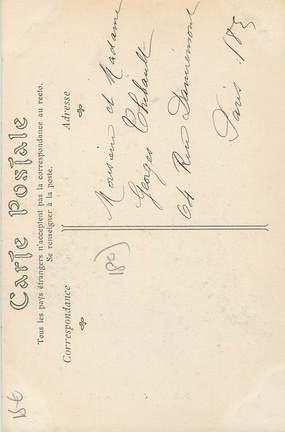 Carte Postale
Tous les pays étrangers n'acceptent pas la correspondance au recto.
Se renseigner à la poste.
Correspondance
Adresse
Monsieur et Madame
Georges Thibault
64 Rue Damrémont
Paris. 18e